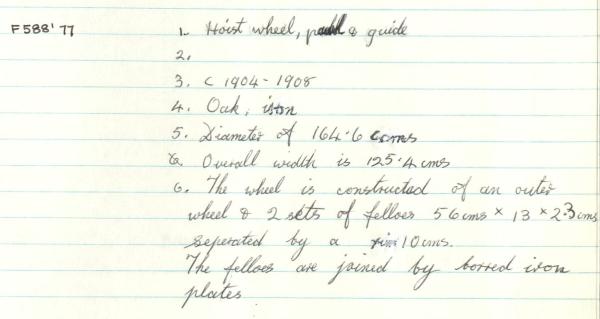 F588'77 1. Hoist wheel, pawl & guide
2.
3. C 1904-1908
4. Oak, iron
5. Diameter of 164.6 cms
Overall width is 125.4 cms
6. The wheel is constructed of an outer
wheel & 2 sets of felloes 56cms x 13 x 2.3cms
seperated by a rim 10cms.
The felloes are joined by borred iron
plates